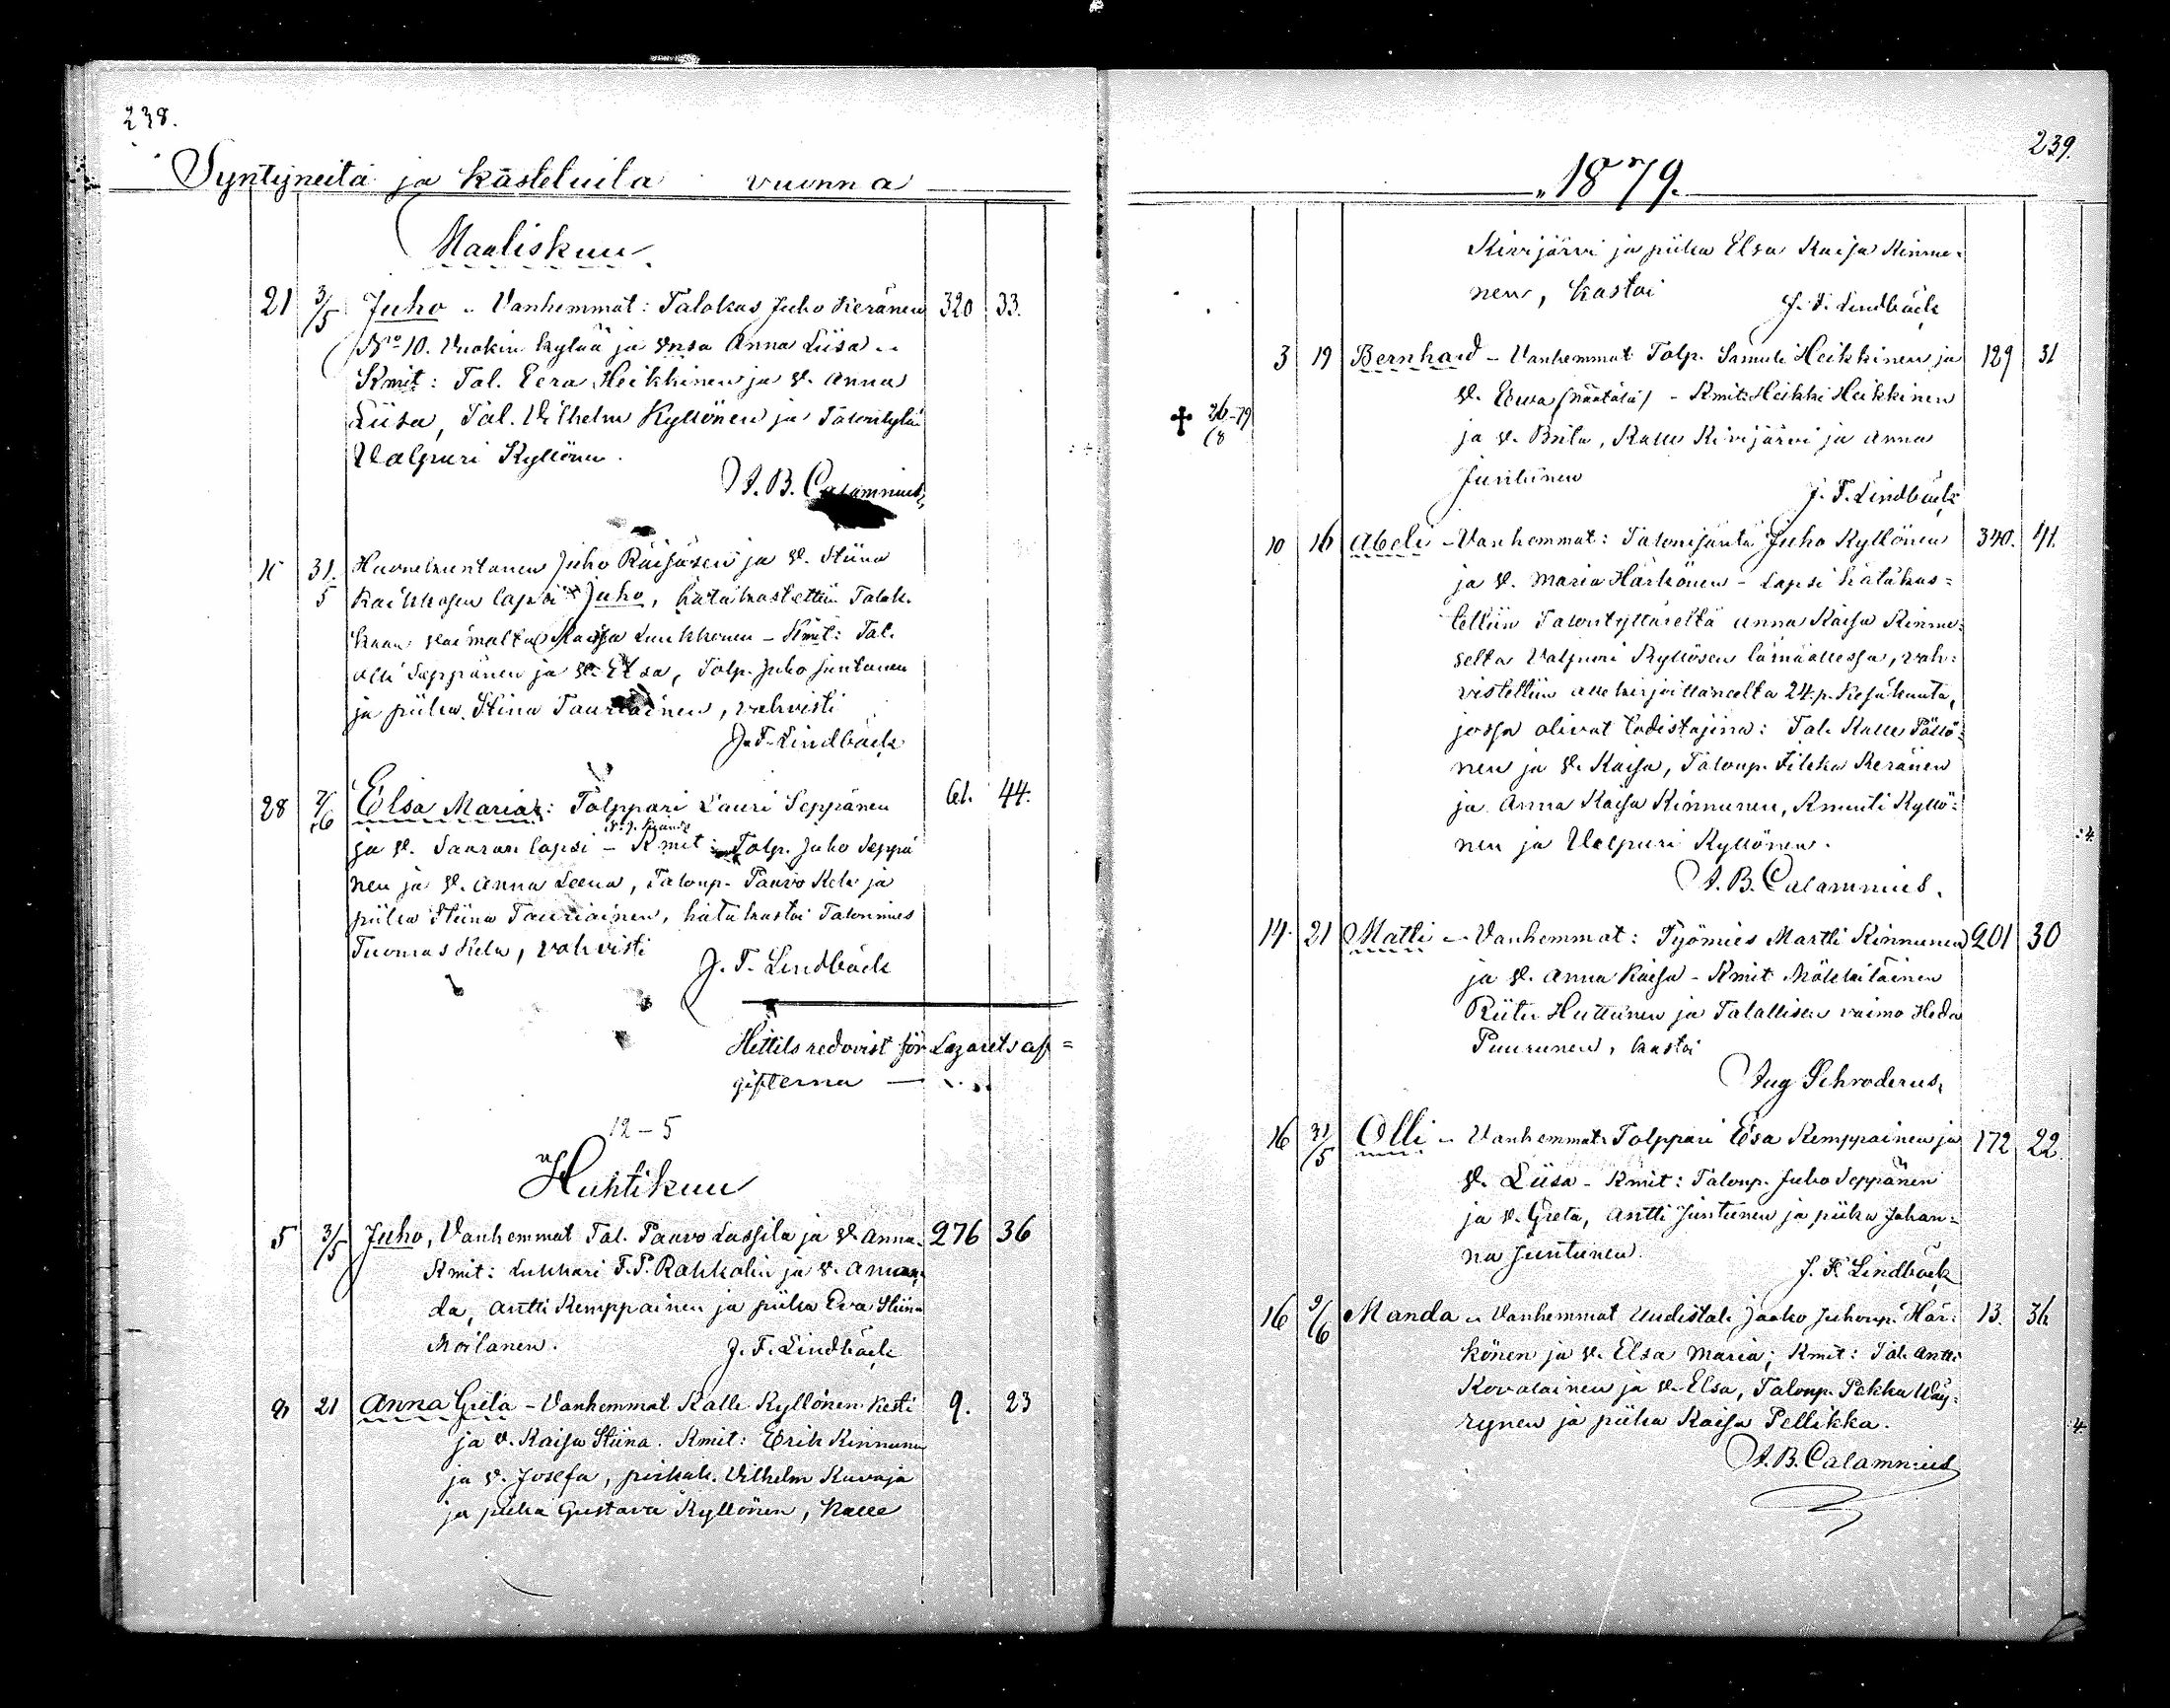 238.
Syntyneitä ja kästeluila vuonna
Maaliskuu
21 3/5 Juho - Vanhemmat: Talokas Juho Keränen 320 33.
No 10. Vuokin kylää ja vnsa Anna Liisa -
Kmit: Tal. Eera Heikkinen ja v. Anna
Liisa, Tal. Vilhelm Kyllönen ja
Valpuri Kyllönen.
A. B. Calamnius
31. Huonekuntanen Juho Räisäsen ja v. Stiina
5 lapsi Juho, hätäkastettiin Talok.
Kaisa Luukkonen - Kmit: Tal.
Olli Seppänen ja v. Elsa, Tolp. Juho Juntunen
ja piika Stina Tauriainen, vahvisti
J. F. Lindbäck
28 2/6 Elsa Maria: Tolppari Lauri Seppänen 61. 44.
ja v. Saaran lapsi - Kmit: Tolp. Juho Seppä
nen ja v. Anna Leena, Taloup. Paavo Kela ja
piika Stiina Tauriainen, hätäkastoi Talonmies
Tuomas Kela, vahvisti
J. F. Lindbäck
Hittils redovist för Lazaretsaf=
gifterna —
12-5
Huhtikuu
5 3/5 Juho, Vanhemmat Tal. Paavo Lassila ja v. Anna. 276 36
Kmit: Lukkari F. P. Rahkolin ja v. Aman
da, Antti Kemppainen ja piika Eva Stiina
Moilanen. J. F. Lindbäck
9 21 Anna Greta - Vanhemmat Kalle Kyllönen Kesti 9. 23
ja v. Kaisa Stiina. Kmit: Erik Kinnunen
ja v. Josefa, Vilhelm Kuvaja
ja piika Gustava Kyllönen, Kalle
239.
1879.
Kivijärvi ja piika Elsa Kaisa Kinnu=
nen, kastoi
J. F. Lindbäck
3 19 Bernhard - Vanhemmat Tolp. Samuli Heikkinen ja 129 31
v. Eeva (Määtätä) - Kmit: Heikki Heikkinen
26-79
/8
ja v. Brita, Kalle Kivijärvi ja Anna
Juntunen
J. F. Lindbäck
10 16 Abeli - Vanhemmat: Talonisäntä Juho Kyllönen 340. 41.
ja v. Maria Härkönen - Lapsi hätäkas=
tettiin Talontyttäreltä Anna Kaisa Kinnu=
selta Valpuri Kyllösen läsnäollessa, vah=
vistettiin allekirjoittaneelta 24. p. Kesäkuuta,
jossa olivat todistajina: Tal. Kalle Pöllö=
nen ja v. Kaisa, Taloup. Keränen
ja Anna Kaisa Kinnunen, Knuuti Kyllö=
nen ja Valpuri Kyllönen.
A. B. Calamnius.
14. 21 Matti - Vanhemmat: Työmies Martti Kinnunen 201 30
ja v. Anna Kaisa - Kmit Mökkiläinen
Riitu Huttunen ja Talallisen vaimo Heda
Puurunen, kastoi
Aug Schroderus,
16 31/5 Olli - Vanhemmat: Tolppari Esa Kemppainen ja 172 22.
v. Liisa - Kmit: Taloup. Juho Seppänen
ja v. Greta, Antti Juntunen ja piika Johan=
na Juntunen.
J. F. Lindbäck
16 9/6 Manda - Vanhemmat Uudistal. Jaako Juhonp. Här= 13. 36
könen ja v. Elsa Maria; Kmit: Tal. Antti
Kovalainen ja v. Elsa, Taloup. Pekka Wäy=
rynen ja piika Kaisa Pellikka.
A. B. Calamnius